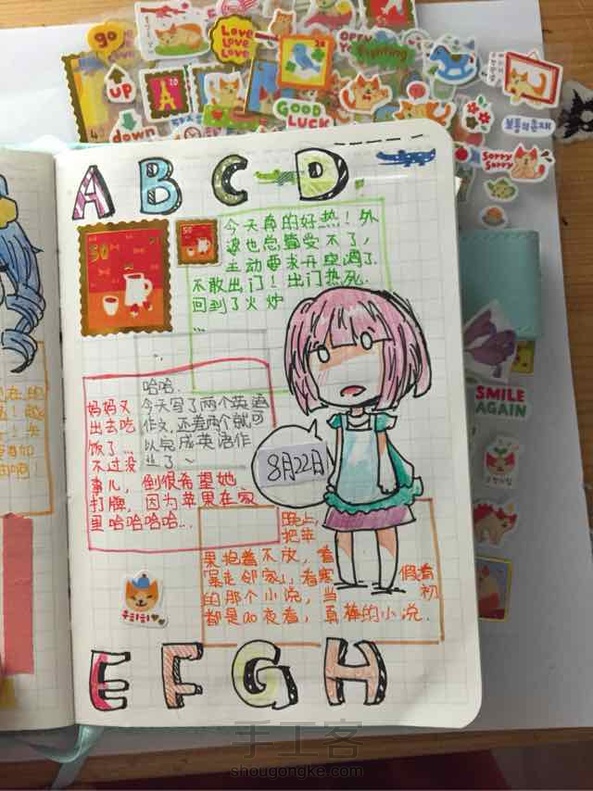 go
Love
Love
Love
UP
down
GOOD
LUCK
Sorry
Sorry
SMILE
AGAIN
A B C D
50
50
今天真的好热！外
婆也忽算受不了，
主动要求开空调了
不敢出门！出门热死
回到了火炉
...
哈哈
今天写了两个英语
作文，还差两个就可
以完成英语作
业了～
妈妈又
出去吃
饭了...
不过没
事儿，倒很希望她
打牌，因为苹果在家
里哈哈哈哈...
8月22日
晚上，
把苹
果抱着不放，看
「暴走邻家」，看寒假看
的那个小说，当初
都是00夜看，真棒的小说.
E F G H
手工客
shougongke.com